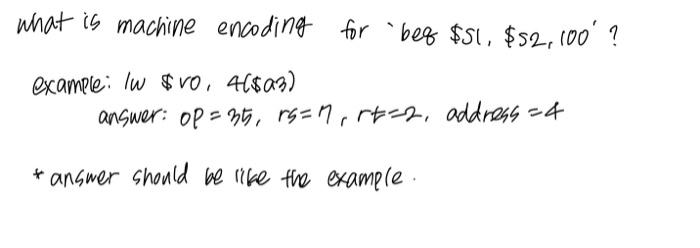 what is machine encoding for `beq $S1, $S2, 100' ?
example: lw $v0, 4($a3)
answer: op = 35, rs=7, rt=2, address=4
* answer should be like the example.